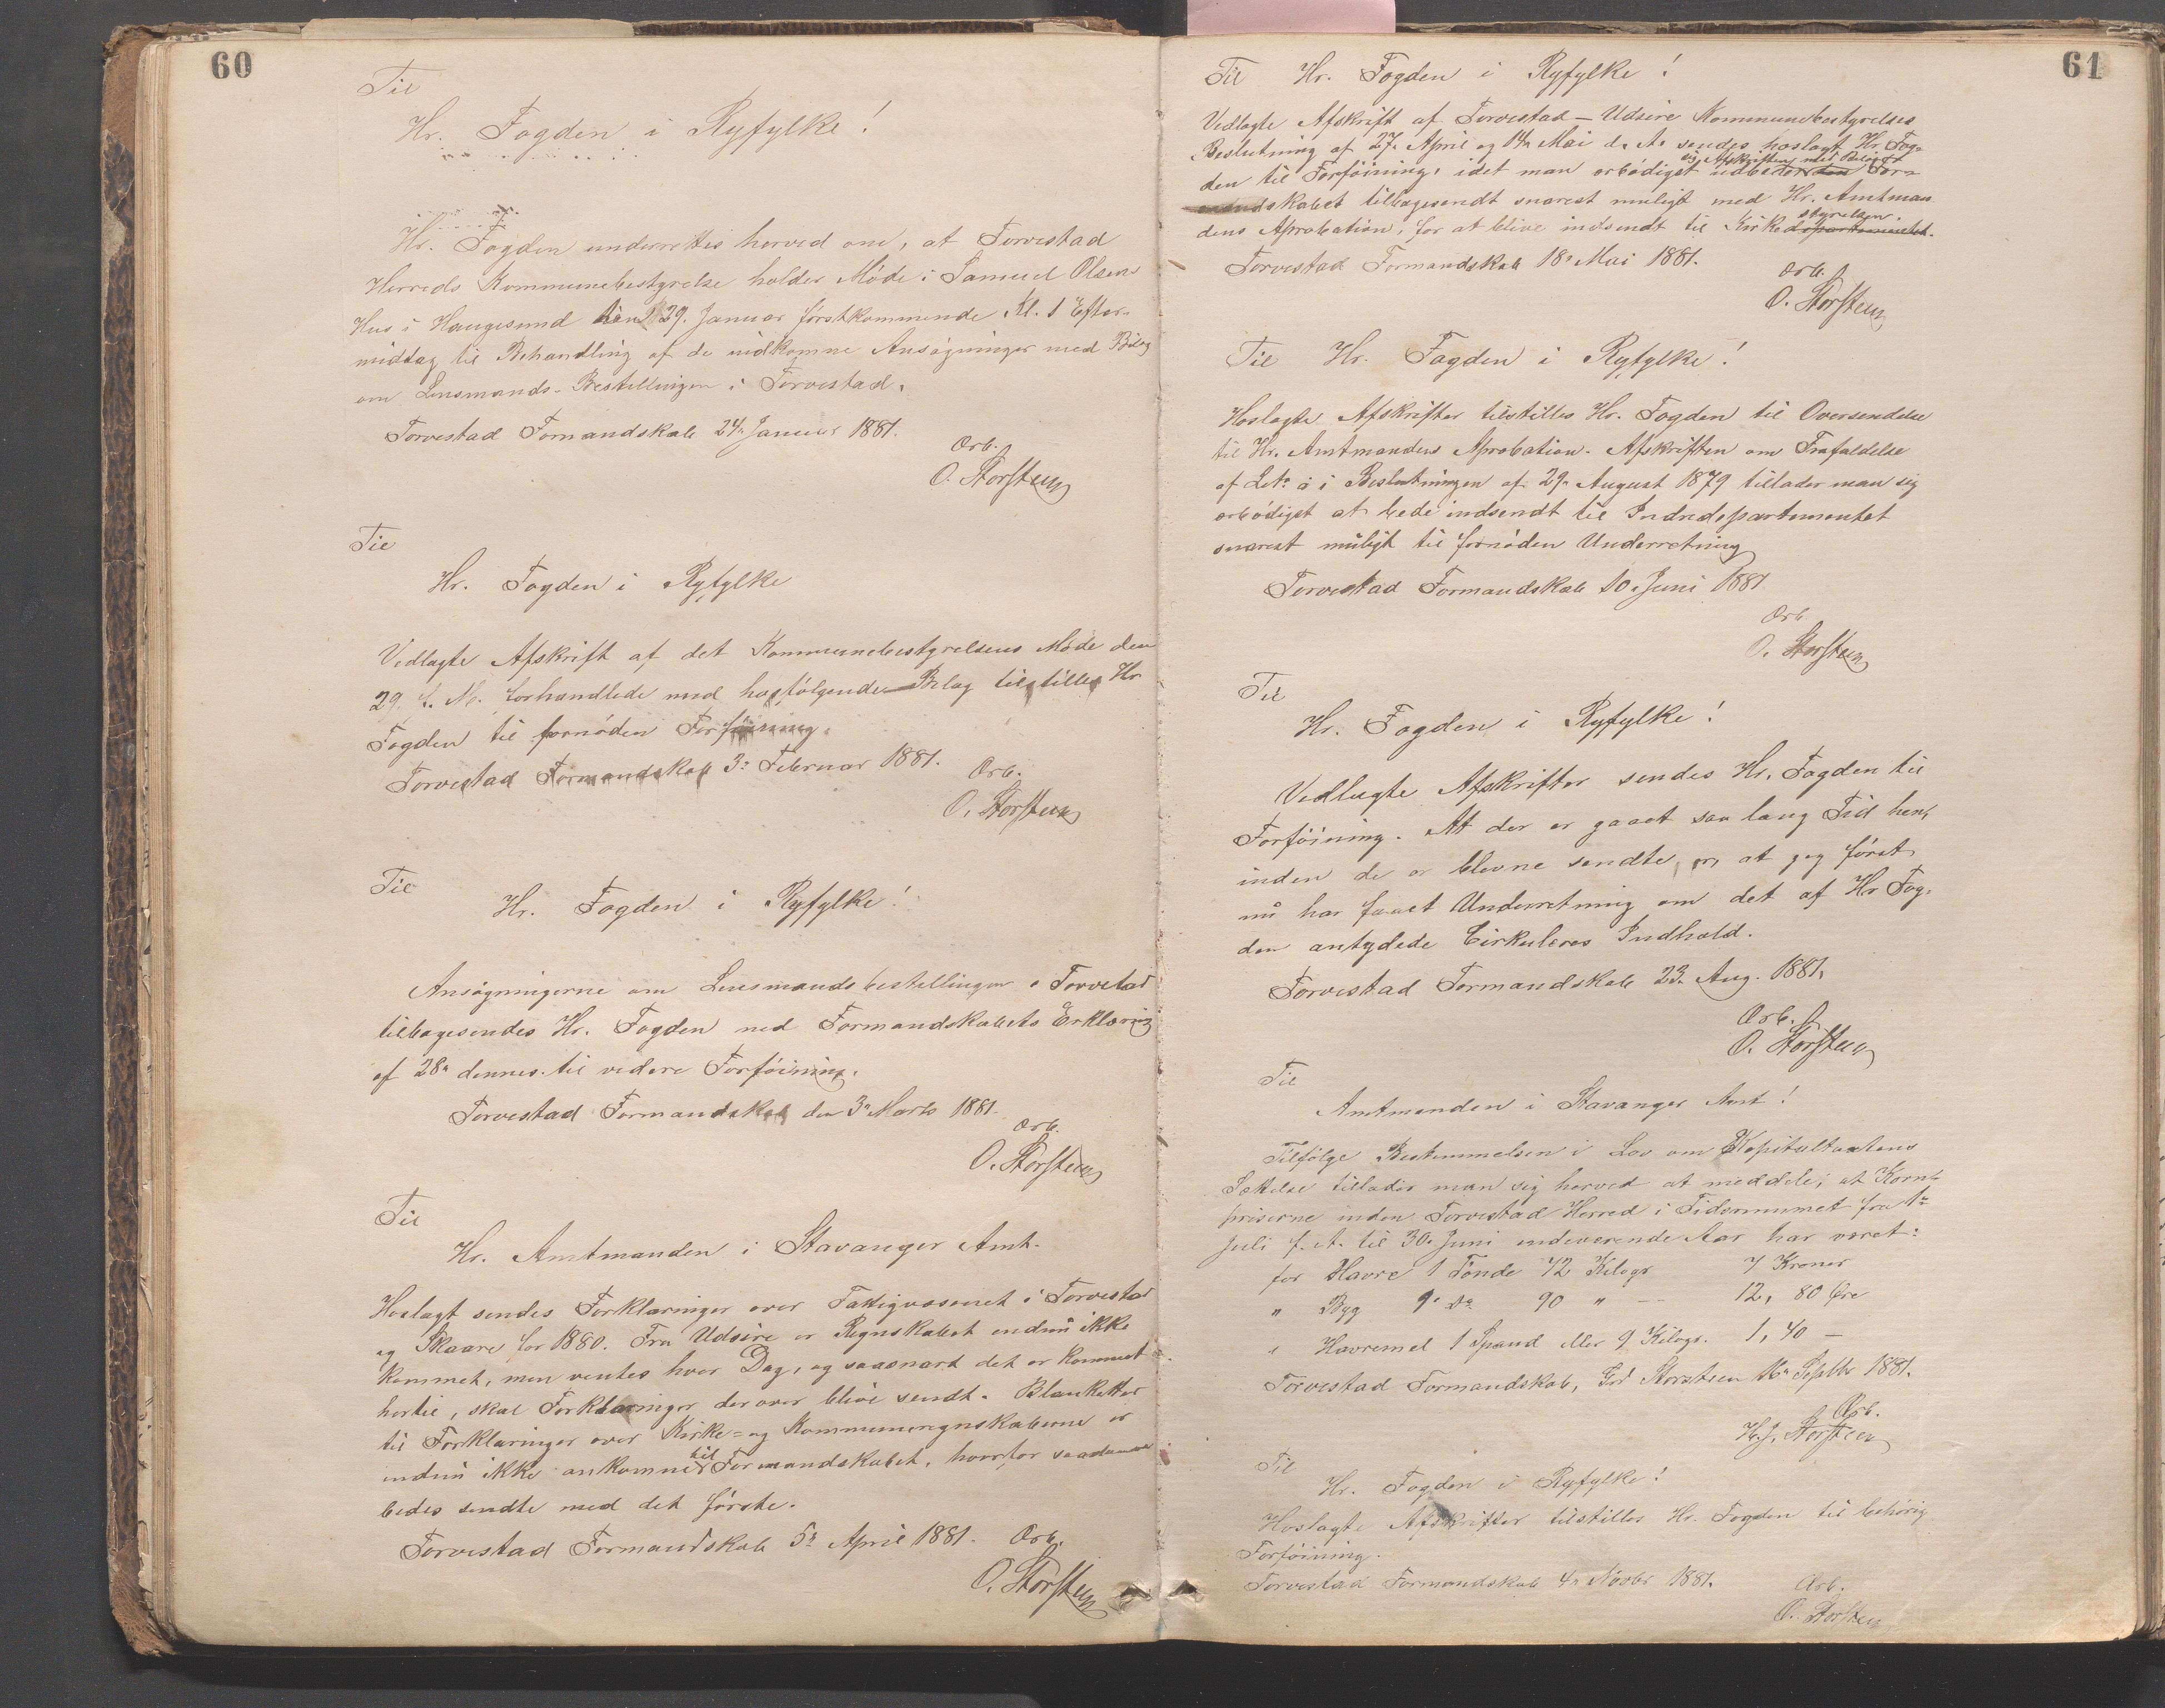 60
Til
Hr. Fogden i Ryfylke!
Hr. Fogden underrettes herved om, at Torvestad
Herreds Kommunebestyrelse holder Møde i Samuel Olsens
Hus i Haugesund den 29. Januar førstkommende Kl. 1 Efter-
middag til Behandling af de indkomne Ansøgninger med Bilag
om Lensmands-Bestillingen i Torvestad.
Torvestad Formandskab 24. Januar 1881.
Ærb.
O. Storsteen
Til
Hr. Fogden i Ryfylke
Vedlagte Afskrift af det Kommunebestyrelsens Møde den
29. f. M. forhandlede med hosfølgende Bilag tilstilles Hr
Fogden til fornøden Forføining.
Torvestad Formandskab 3. Februar 1881.
Ærb.
O. Storsteen
Til
Hr. Fogden i Ryfylke!
Ansøgningerne om Lensmandsbestillingen i Torvestad
tilbagesendes Hr. Fogden med Formandskabets Erklæring
af 28. dennes til videre Forføining.
Torvestad Formandskab den 3. Marts 1881.
Ærb.
O. Storsteen
Til
Hr. Amtmanden i Stavanger Amt.
Hoslagt sendes Forklaringer over Fattigvæsenet i Torvestad
og Skaare for 1880. Fra Udsire er Regnskabet endnu ikke
kommet, men ventes hver Dag, og saasnart det er kommet
hertil, skal Forklaringer derover blive sendt. Blanketter
til Forklaringer over Kirke- og Kommuneregnskaberne er
endnu ikke ankomne til Formandskabet, hvorfor saadanne
bedes sendte med det første.
Torvestad Formandskab 5. April 1881. Ærb.
O. Storsteen
61
Til Hr. Fogden i Ryfylke!
Vedlagte Afskrift af Torvestad-Udsire Kommunebestyrelses
Beslutning af 27. April og 14. Mai d. A. sendes hoslagt Hr. Fog-
den til Forføining, idet man ærbødigst udbeder sig Afskriften med Bilag For-
mandskabet tilbagesendt snarest muligt med Hr. Amtman-
dens Aprobation, for at blive indsendt til Kirkedepartementet. styrelsen.
Torvestad Formandskab 18. Mai 1881.
Ærb.
O. Storsteen
Til Hr. Fogden i Ryfylke!
Hoslagte Afskrifter tilstilles Hr. Fogden til Oversendelse
til Hr. Amtmandens Aprobation. Afskriften om Frafaldelse
af Lit. a i Beslutningen af 29. August 1879 tillader man sig
ærbødigst at bede indsendt til Indredepartementet
snarest muligt til fornøden Underretning
Torvestad Formandskab 10. Juni 1881
Ærb
O. Storsteen
Til
Hr. Fogden i Ryfylke!
Vedlagte Afskrifter sendes Hr. Fogden til
Forføining. At der er gaaet saa lang Tid hen,
inden de er blevne sendte, er, at jeg først
nu har faaet Underretning om det af Hr Fog-
den antydede Cirkulæres Indhold.
Torvestad Formandskab 23. Aug. 1881.
Ærb.
O. Storsteen
Til
Amtmanden i Stavanger Amt!
Tilfølge Bestemmelsen i Lov om Kapitaltaxtens
Sættelse tillader man sig herved at meddele, at Korn-
priserne inden Torvestad Herred i Tidsrummet fra 1.
Juli f. A. til 30. Juni indeværende Aar har været:
for Havre 1 Tønde 72 Kilogr 7 Kroner
" Byg 1 Do 90 " — 12, 80 Øre
" Havremel 1 Spand eller 9 Kilogr. 1, 40 —
Torvestad Formandskab, Storsteen 16. Septbr 1881.
Ærb.
H. J. Storsteen
Til
Hr. Fogden i Ryfylke!
Hoslagte Afskrifter tilstilles Hr. Fogden til behørig
Forføining.
Torvestad Formandskab 4. Novbr 1881.
Ærb.
O. Storsteen